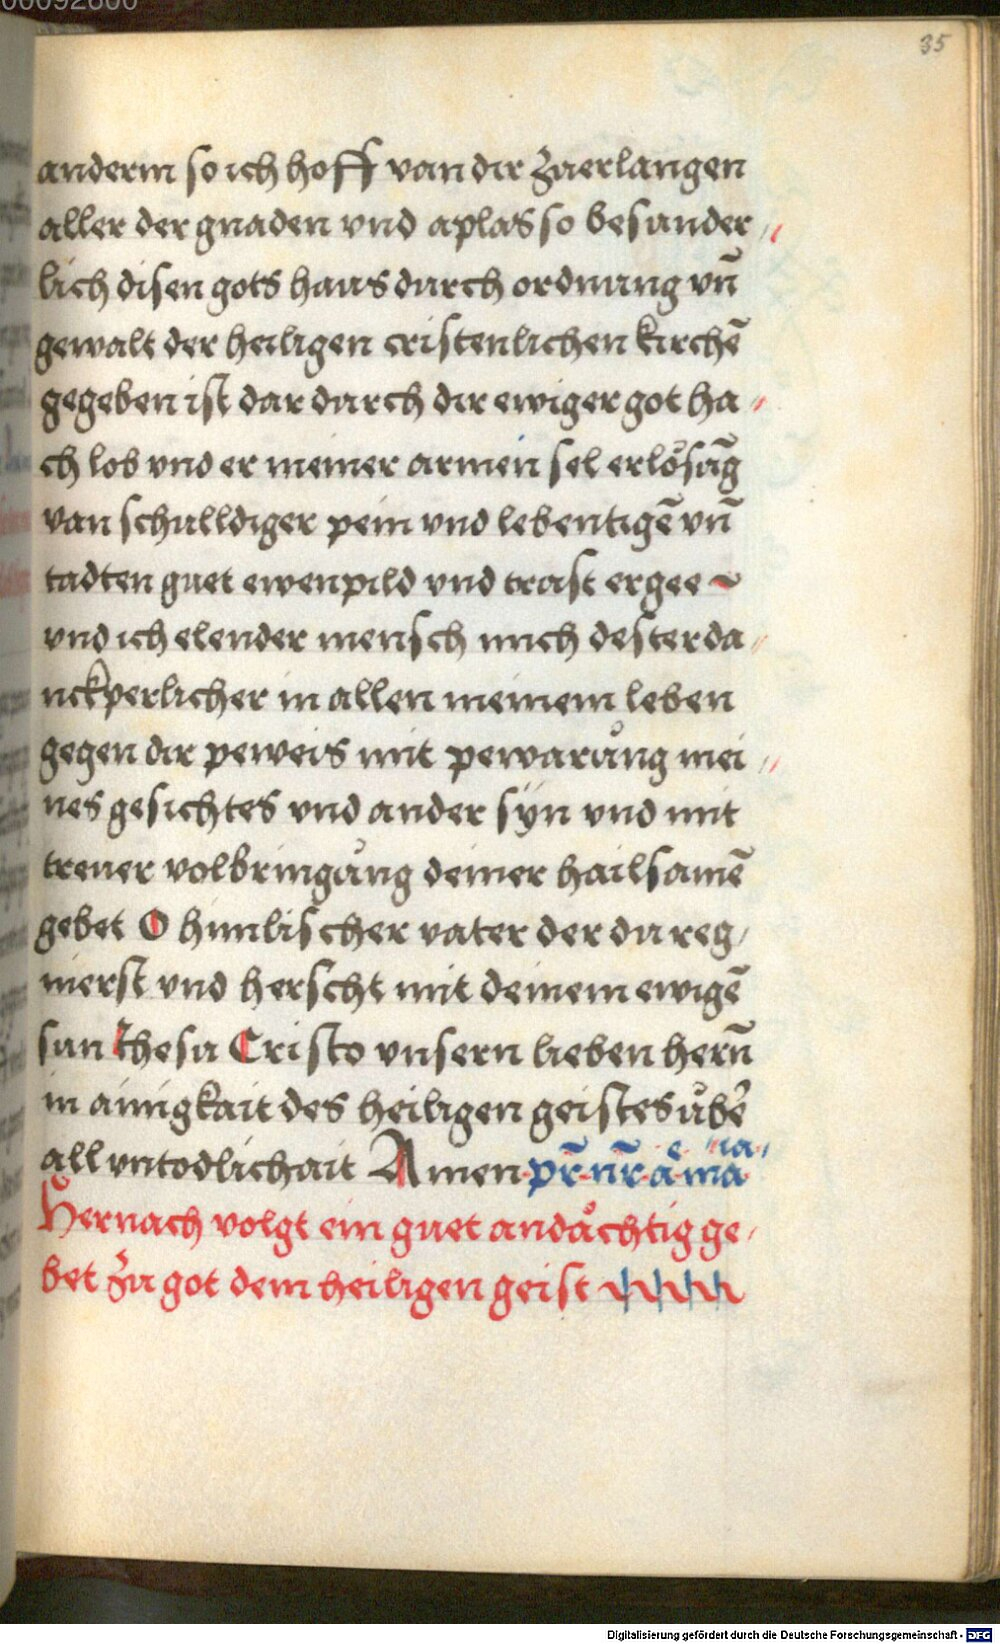 00092600
35
anderm so ich hoff van dir zuerlangen
aller der gnaden vnd aplas so besunder
lich disen gots haus durch ordnung vn̄
gewalt der heiligen cristenlichen kirchē
gegeben ist dar durch dir ewiger got ha
ch lob vnd er meiner armen sel erlősūg
van schulldiger pein vnd lebentigē vn̄
tadten guet ewenpild vnd trast ergee
vnd ich elender mensch mich dester da
nckperlicher in allen meinem leben
gegen dir peweis mit pewarůng mei
nes gesichtes vnd ander syn vnd mit
treuer volbringůng deiner hailsamē
gebet O himlischer vater der du reg
nierst vnd herscht mit deinem ewigē
sun Ihesu Cristo vnsern lieben hern̄
in ainigkait des heiligen geistes ůber
all vntodlichait Amen pr̄ nr̄ aͤ ma ia
Hernach volgt ein guet andächtig ge
bet zu got dem heiligen geist
Digitalisierung gefördert durch die Deutsche Forschungsgemeinschaft - DFG